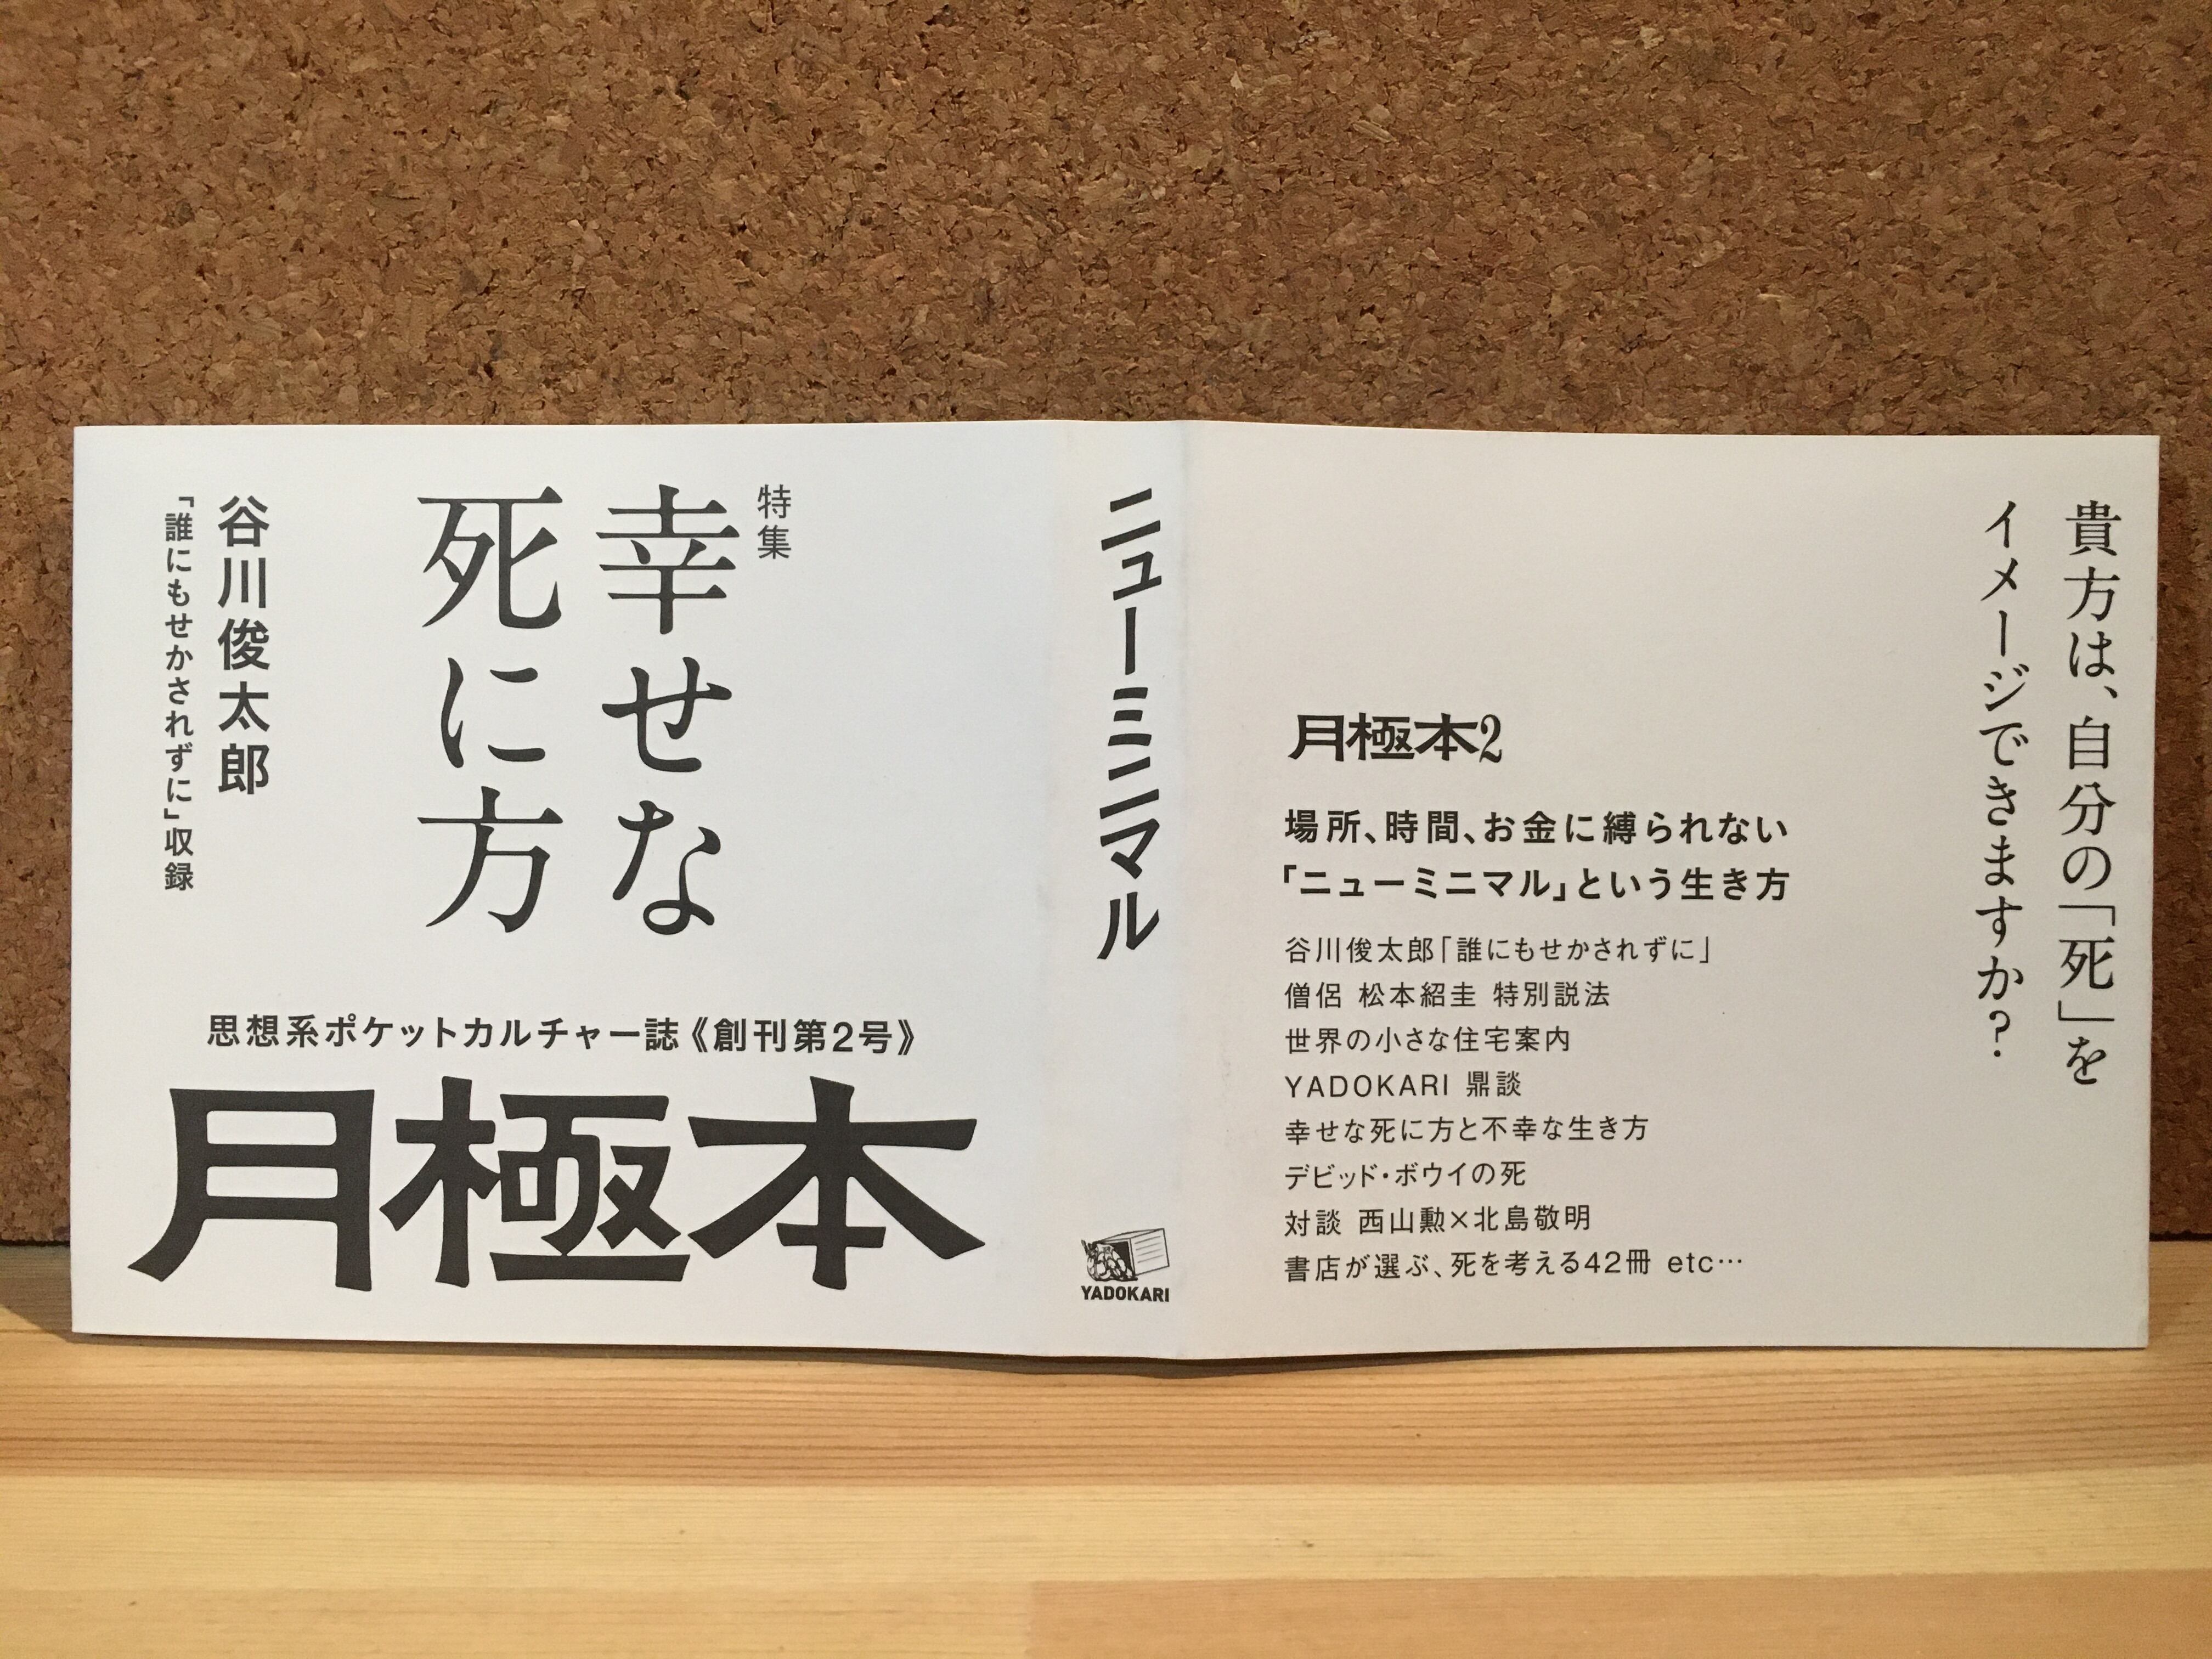 特集
幸せな
死に方
谷川俊太郎
「誰にもせかされずに」収録
思想系ポケットカルチャー誌《創刊第2号》
月極本
ニューミニマル
YADOKARI
貴方は、自分の「死」を
イメージできますか?
月極本2
場所、時間、お金に縛られない
「ニューミニマル」という生き方
谷川俊太郎「誰にもせかされずに」
僧侶 松本紹圭 特別説法
世界の小さな住宅案内
YADOKARI 鼎談
幸せな死に方と不幸な生き方
デビッド・ボウイの死
対談 西山勲×北島敬明
書店が選ぶ、死を考える42冊 etc…